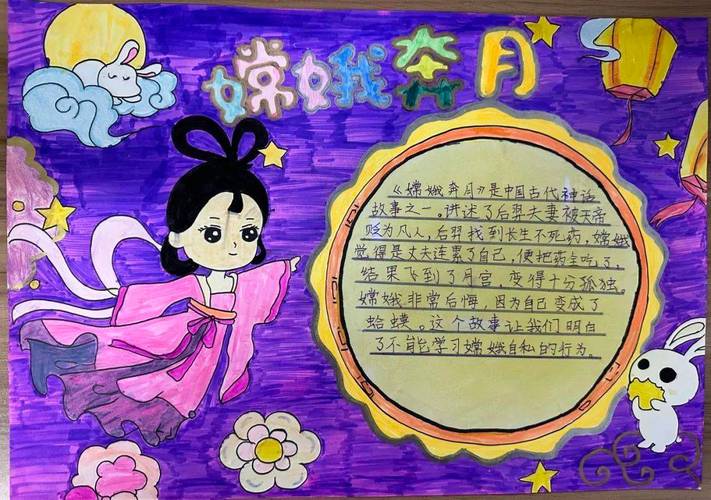 嫦娥奔月
《嫦娥奔月》是中国古代神话
故事之一。讲述了后羿夫妻被天帝
贬为凡人,后羿找到长生不死药,嫦娥
觉得是丈夫连累了自己,便把药全吃了,
结果飞到了月宫,变得十分孤独。
嫦娥非常后悔,因为自己变成了
蛤蟆。这个故事让我们明白
了不能学习嫦娥自私的行为。